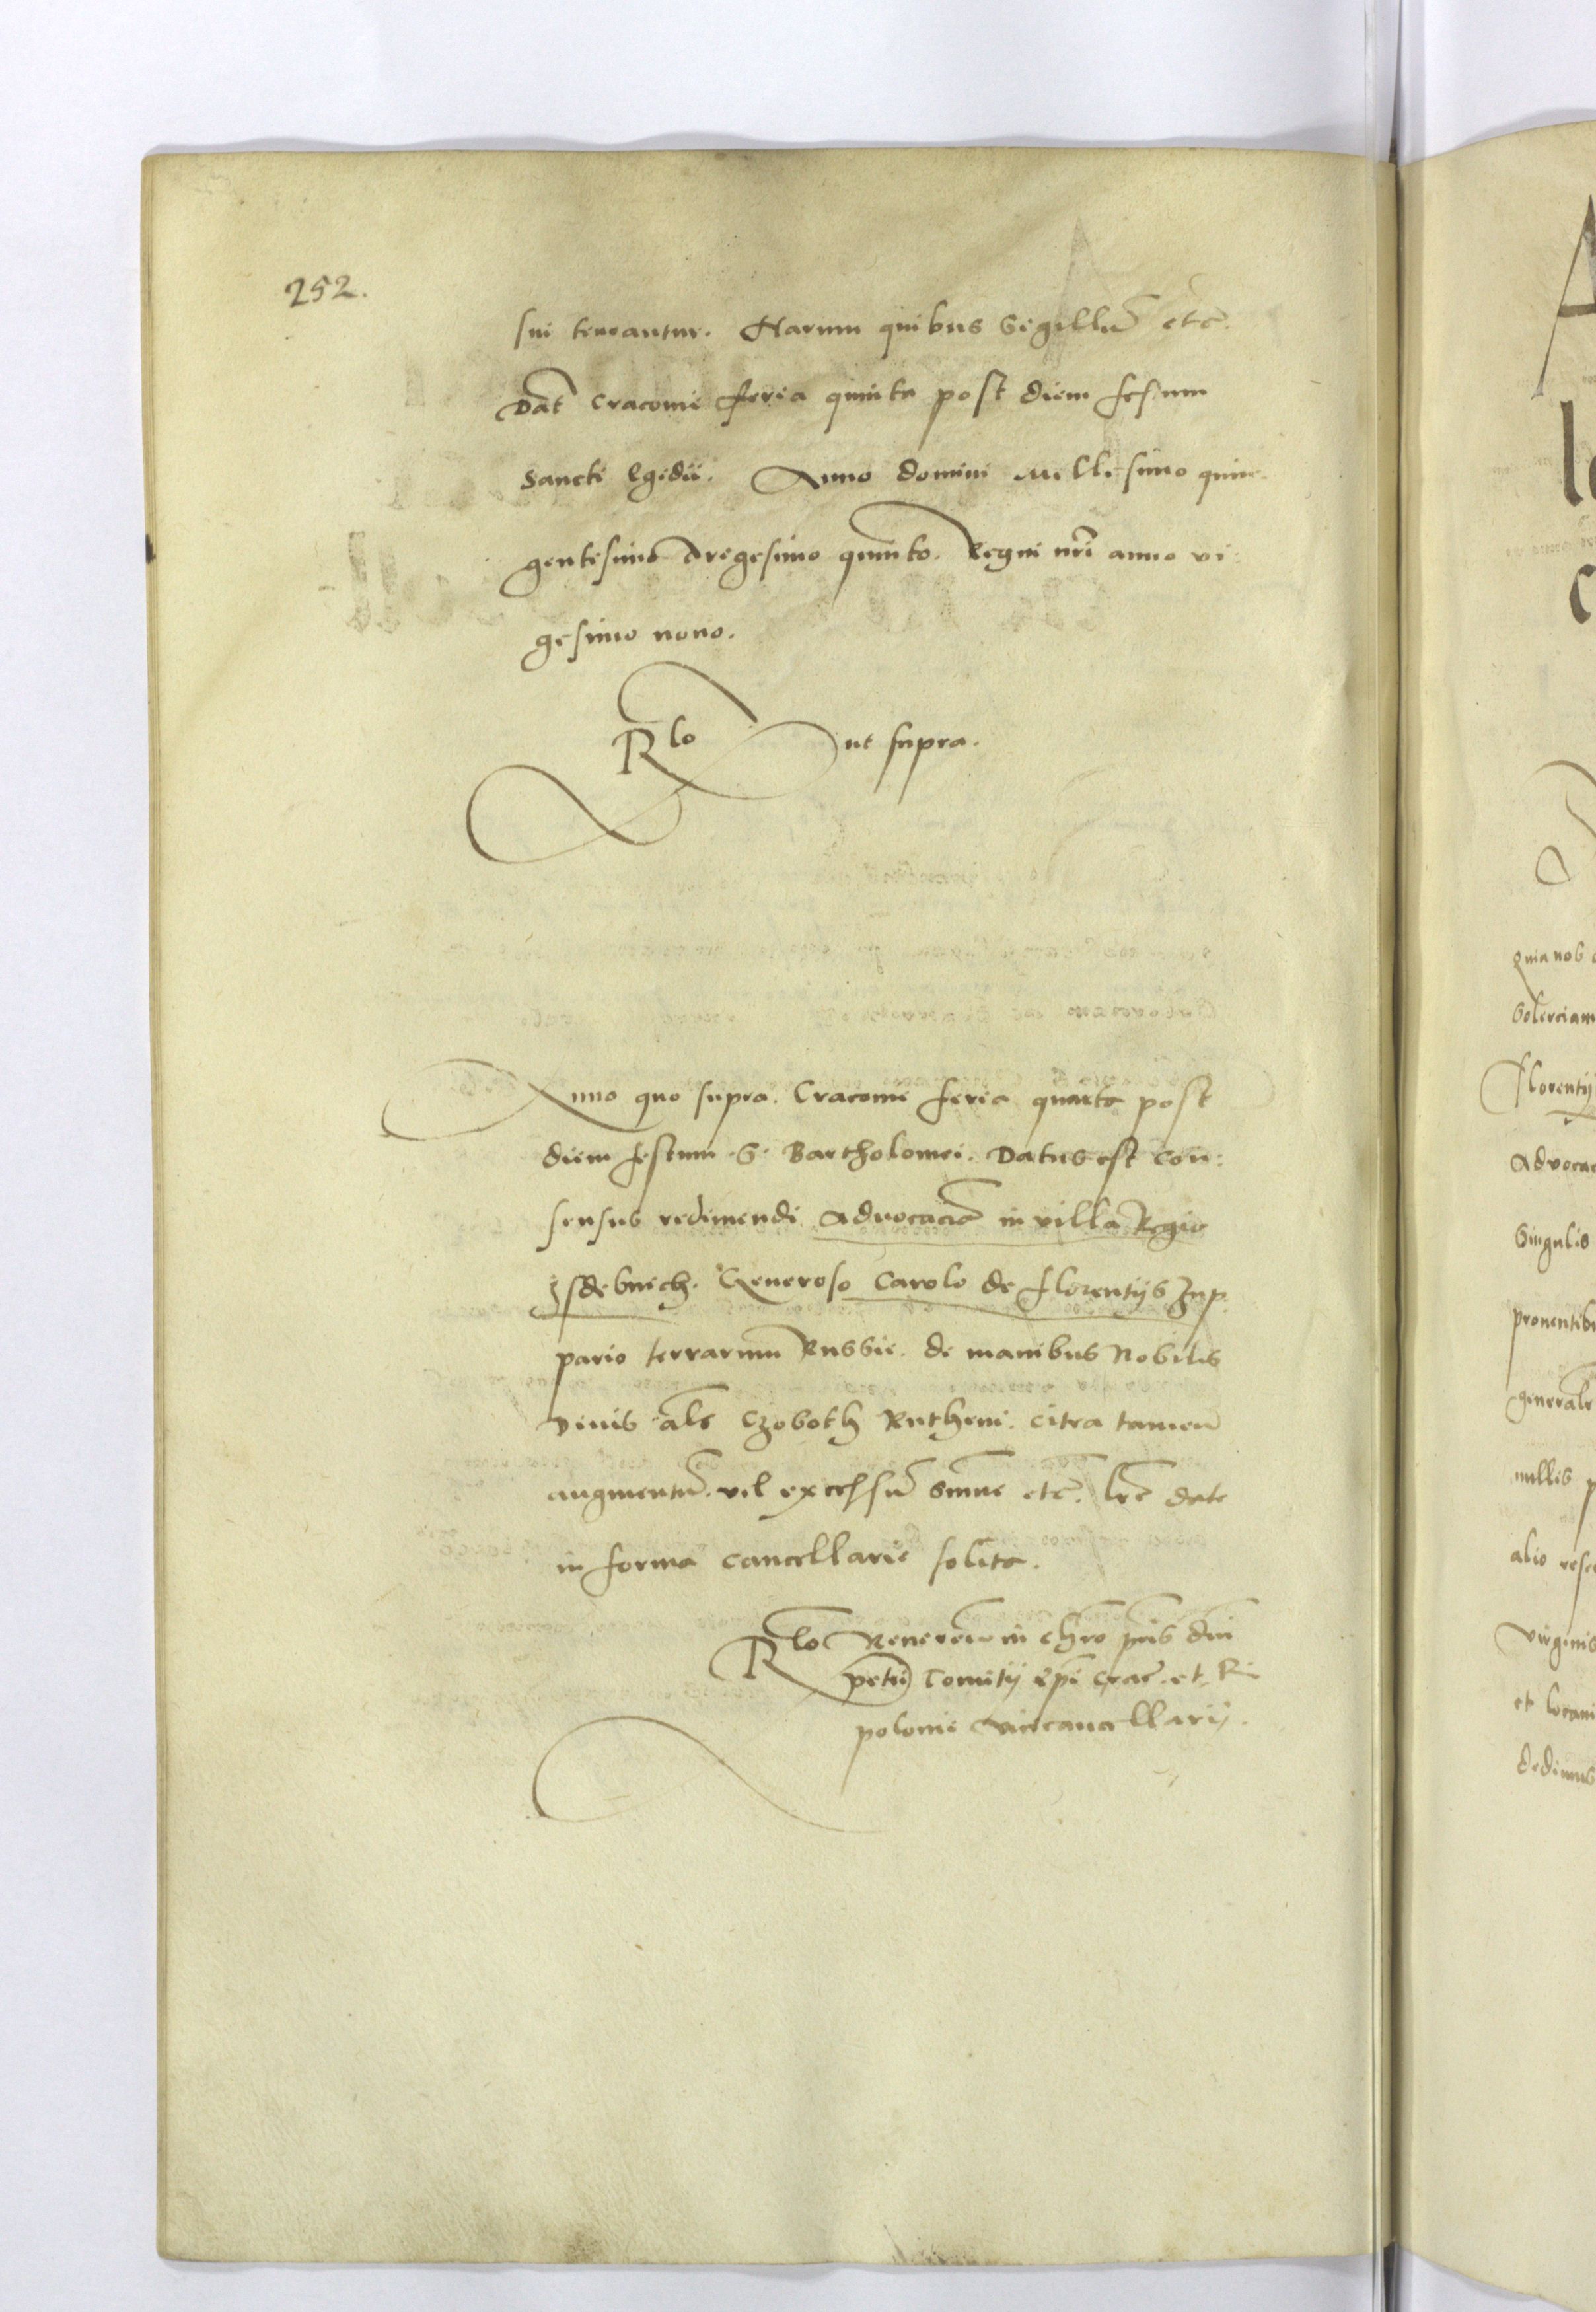 252.
sui teneantur. Harum quibus Sigillu̅ etc̅.
Dat̅ Cracovie feria quinta post diem festum
Sancti Egidii. Anno domini Millesimo quin-
gentesimo Tregesimo quinto. Regni nr̅i anno vi-
gesimo nono.
Rlo ut supra.
Anno quo supra. Cracovie feria quarta post
diem festum S. Bartholomei. Datus est con:
sensus redimendi advocacia̅ in villa Regia
Generoso Carolo de Florentijs Zup:
pario terrarum Russie. de manibus Nobilis
als̅ Czoboth Rutheni. citra tamen
augmentu̅. vel excessu̅ sum̅e etc̅. lr̅e date
in forma cancellarie solita.
Rlo Reveren̅ in chr̅o pr̅is dn̅i
Petri Comitij ep̅i Crac̅. et R.
polonie vicecancellarij.
A
le
c
quia nos
Solerciam
Florentij
Advocac
Singulis
proventibu
generale
nullis p
alio
virginis
et locavi
dedimus